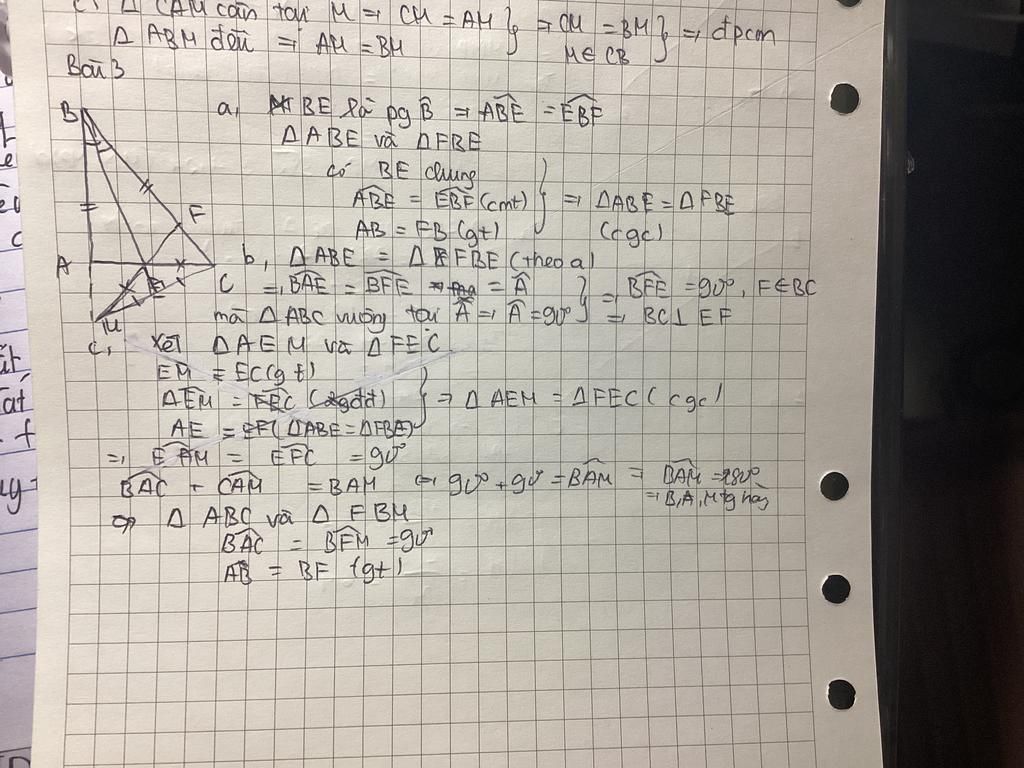 c, Δ CAM cân tại M => CM = AM } => CM = BM } => đpcm
Δ ABM đều => AM = BM M∈ CB
Bài 3
a, BE là pg B̂ => ABE = EBF
Δ ABE và Δ FBE
có BE chung
ABE = EBF (cmt) } => Δ ABE = Δ FBE
AB = FB (gt) (cgc)
b, Δ ABE = Δ FBE (theo a)
=> BAE = BFE = Â } => BFE = 90°, F∈BC
mà Δ ABC vuông tại A => Â = 90° => BC ⊥ EF
c, Xét Δ AEM và Δ FEC
EM = EC (gt)
AEM = FEC (2gđđ) } => Δ AEM = Δ FEC (cgc)
AE = EF (Δ ABE = Δ FBE)
=> EAM = EFC = 90°
BAC + CAM = BAM => 90° + 90° = BAM => BAM = 180°
=> B, A, M thg hàng
=> Δ ABC và Δ FBM
BAC = BFM = 90°
AB = BF (gt)
B
F
A
E
C
M